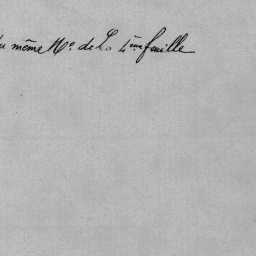 du même Mr. de La 4me feuille